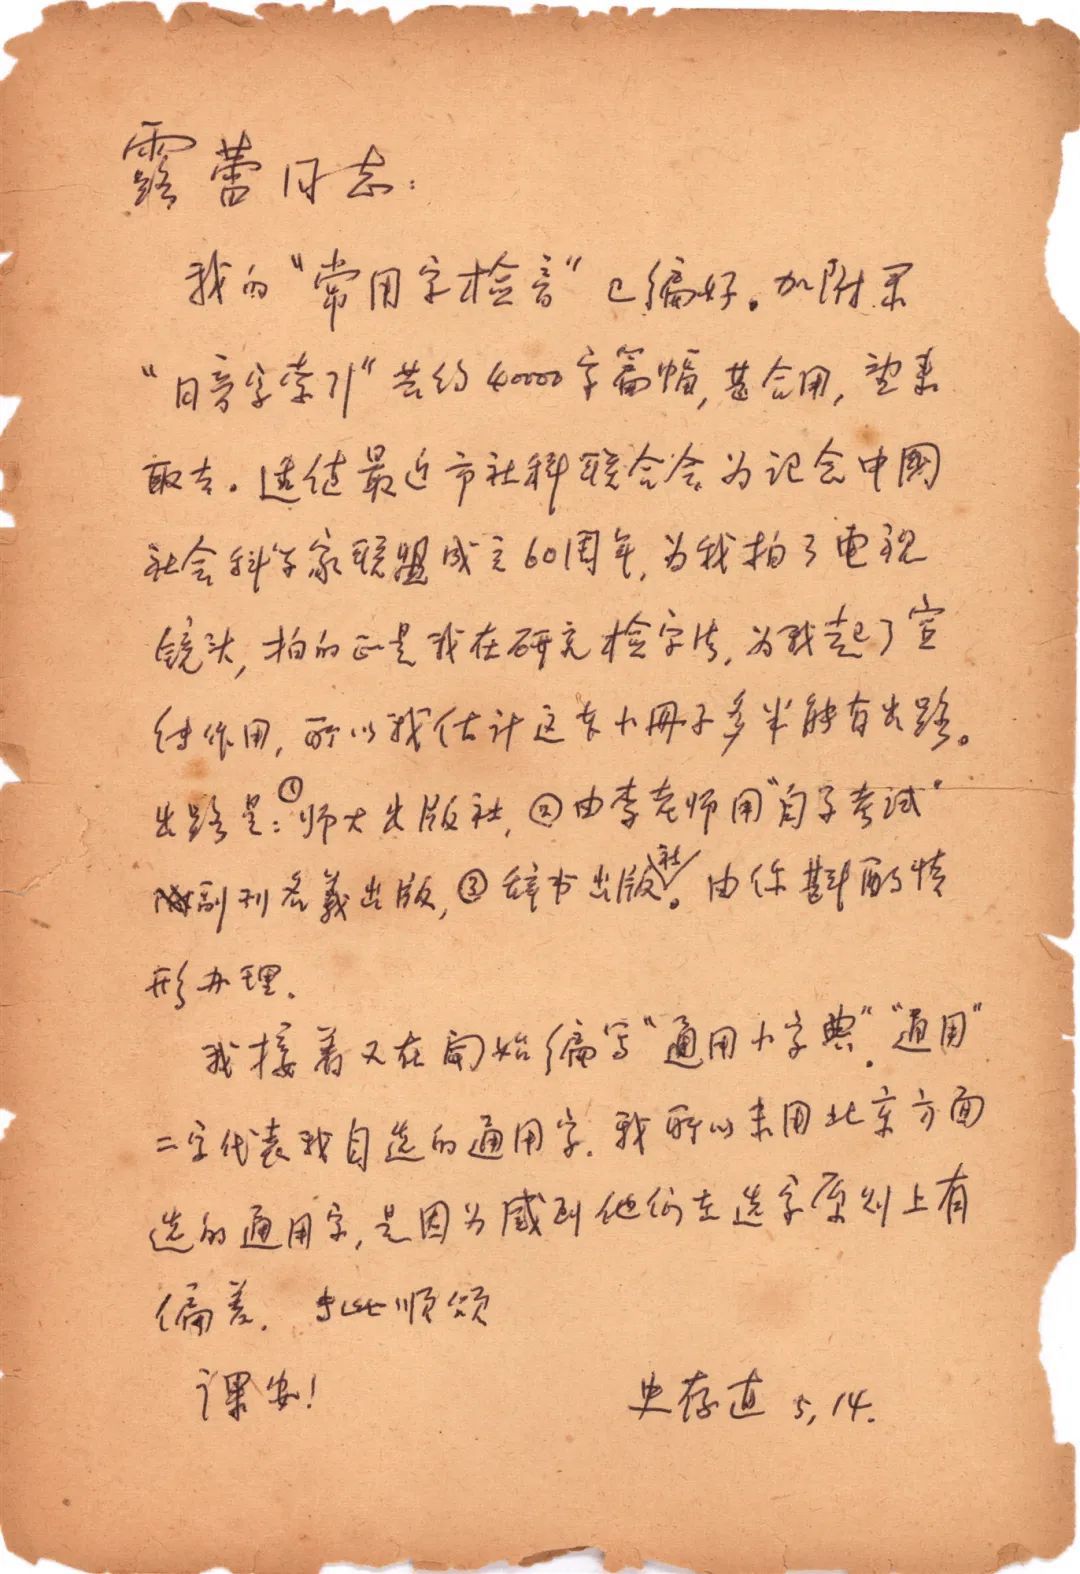 露蕾同志：
我的“常用字检音”已编好。加附录
“同音字索引”共约40000字篇幅，甚合用，望来
取去。适值最近市社科联合会为记念中國
社会科学家联盟成立60周年，为我拍了电视
镜头，拍的正是我在研究检字法，为我起了宣
传作用，所以我估计这本小冊子多半能有出路。
出路是：①师大出版社，②由李老师用“自学考试”
副刊名義出版，③辞书出版社。由你斟酌情
形办理。
我接着又在开始编写“通用小字典”。“通用”
二字代表我自选的通用字。我所以未用北京方面
选的通用字，是因为感到他们在选字原则上有
偏差。专此顺颂
课安！
史存直 5，14.